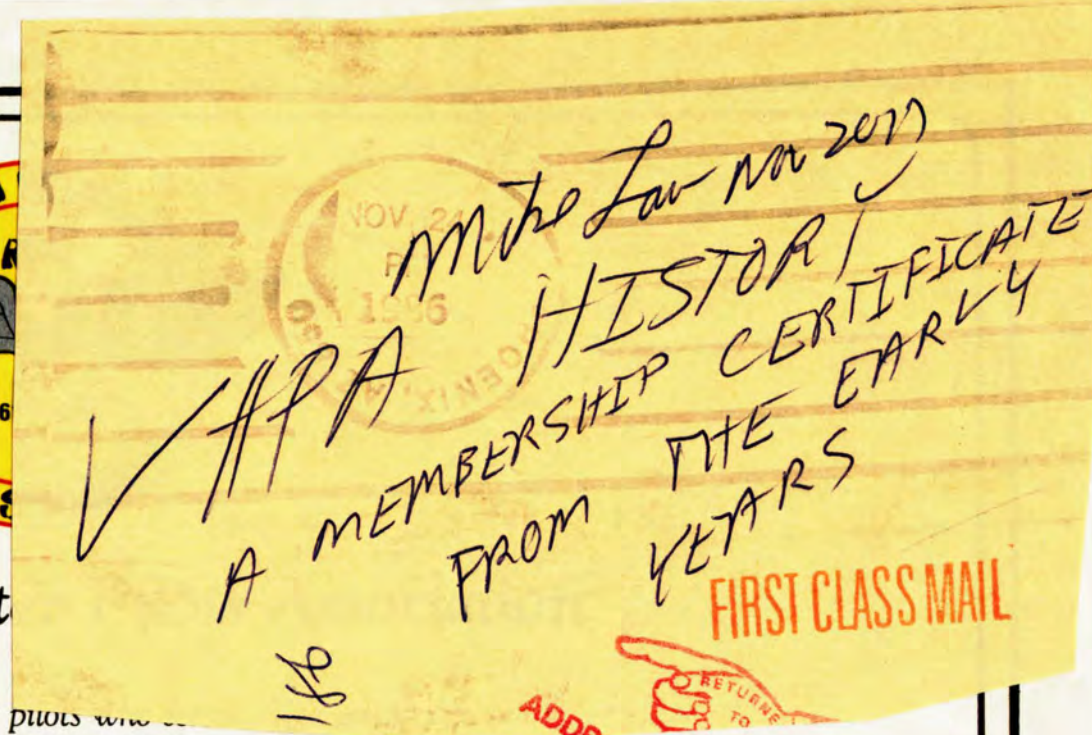 NOV 2
1986
PHOENIX
Mike Law Nov
VHPA HISTORY
A MEMBERSHIP CERTIFICATE
FROM THE EARLY
YEARS
FIRST CLASS MAIL
RETURNE
TO
ADDR
pilots who